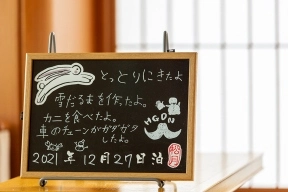 とっとりにきたよ
雪だるまを作ったよ。
カニを食べたよ。
車のチェーンがガタガタ
したよ。
HGDN
2021年12月27日泊